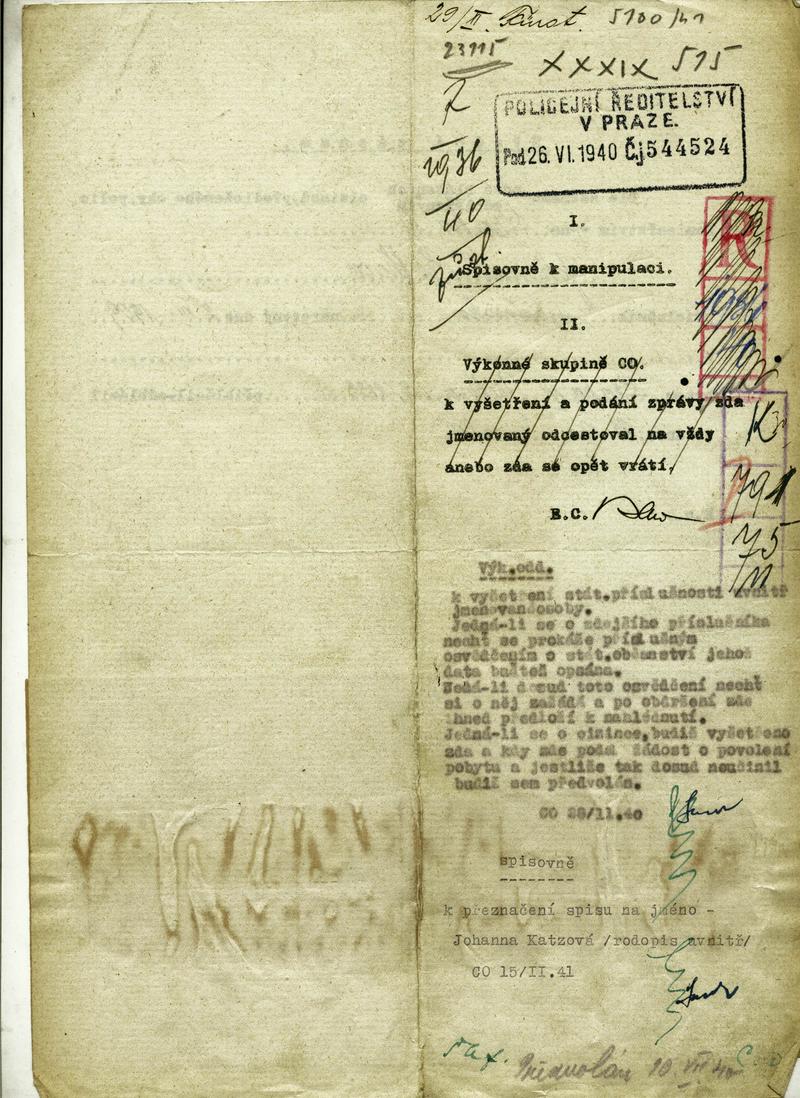 5100/41
23115
XXXIX 515
7
1936
40
POLICEJNÍ ŘEDITELSTVÍ
V PRAZE.
Pod 26. VI. 1940 Čj 544524
R
I.
Spisovně k manipulaci.
II.
Výkonné skupině CO.
k vyšetření a podání zprávy zda
jmenovaný odcestoval na vždy
anebo zda se opět vrátí.
K
791
75
B.C.
Výk.odd.
k vyšetření stát.příslušnosti uvnitř
jmenovan osoby.
Jedná-li se o zdejšího příslušníka
nechť se prokáže příslušným
osvědčením o stát.občanství jehož
data buďtež opsána.
Nemá-li dosud toto osvědčení nechť
si o něj zažádá a po obdržení zde
ihned předloží k nahlédnutí.
Jedná-li se o cizince,budiž vyšetřeno
zda a kdy zde podal žádost o povolení
pobytu a jestliže tak dosud neučinil
budiž sem předvolán.
CO 28/11.40
spisovně
k přeznačení spisu na jméno -
Johanna Katzová /rodopis uvnitř/
CO 15/II.41
Předvolán 20. VII 40